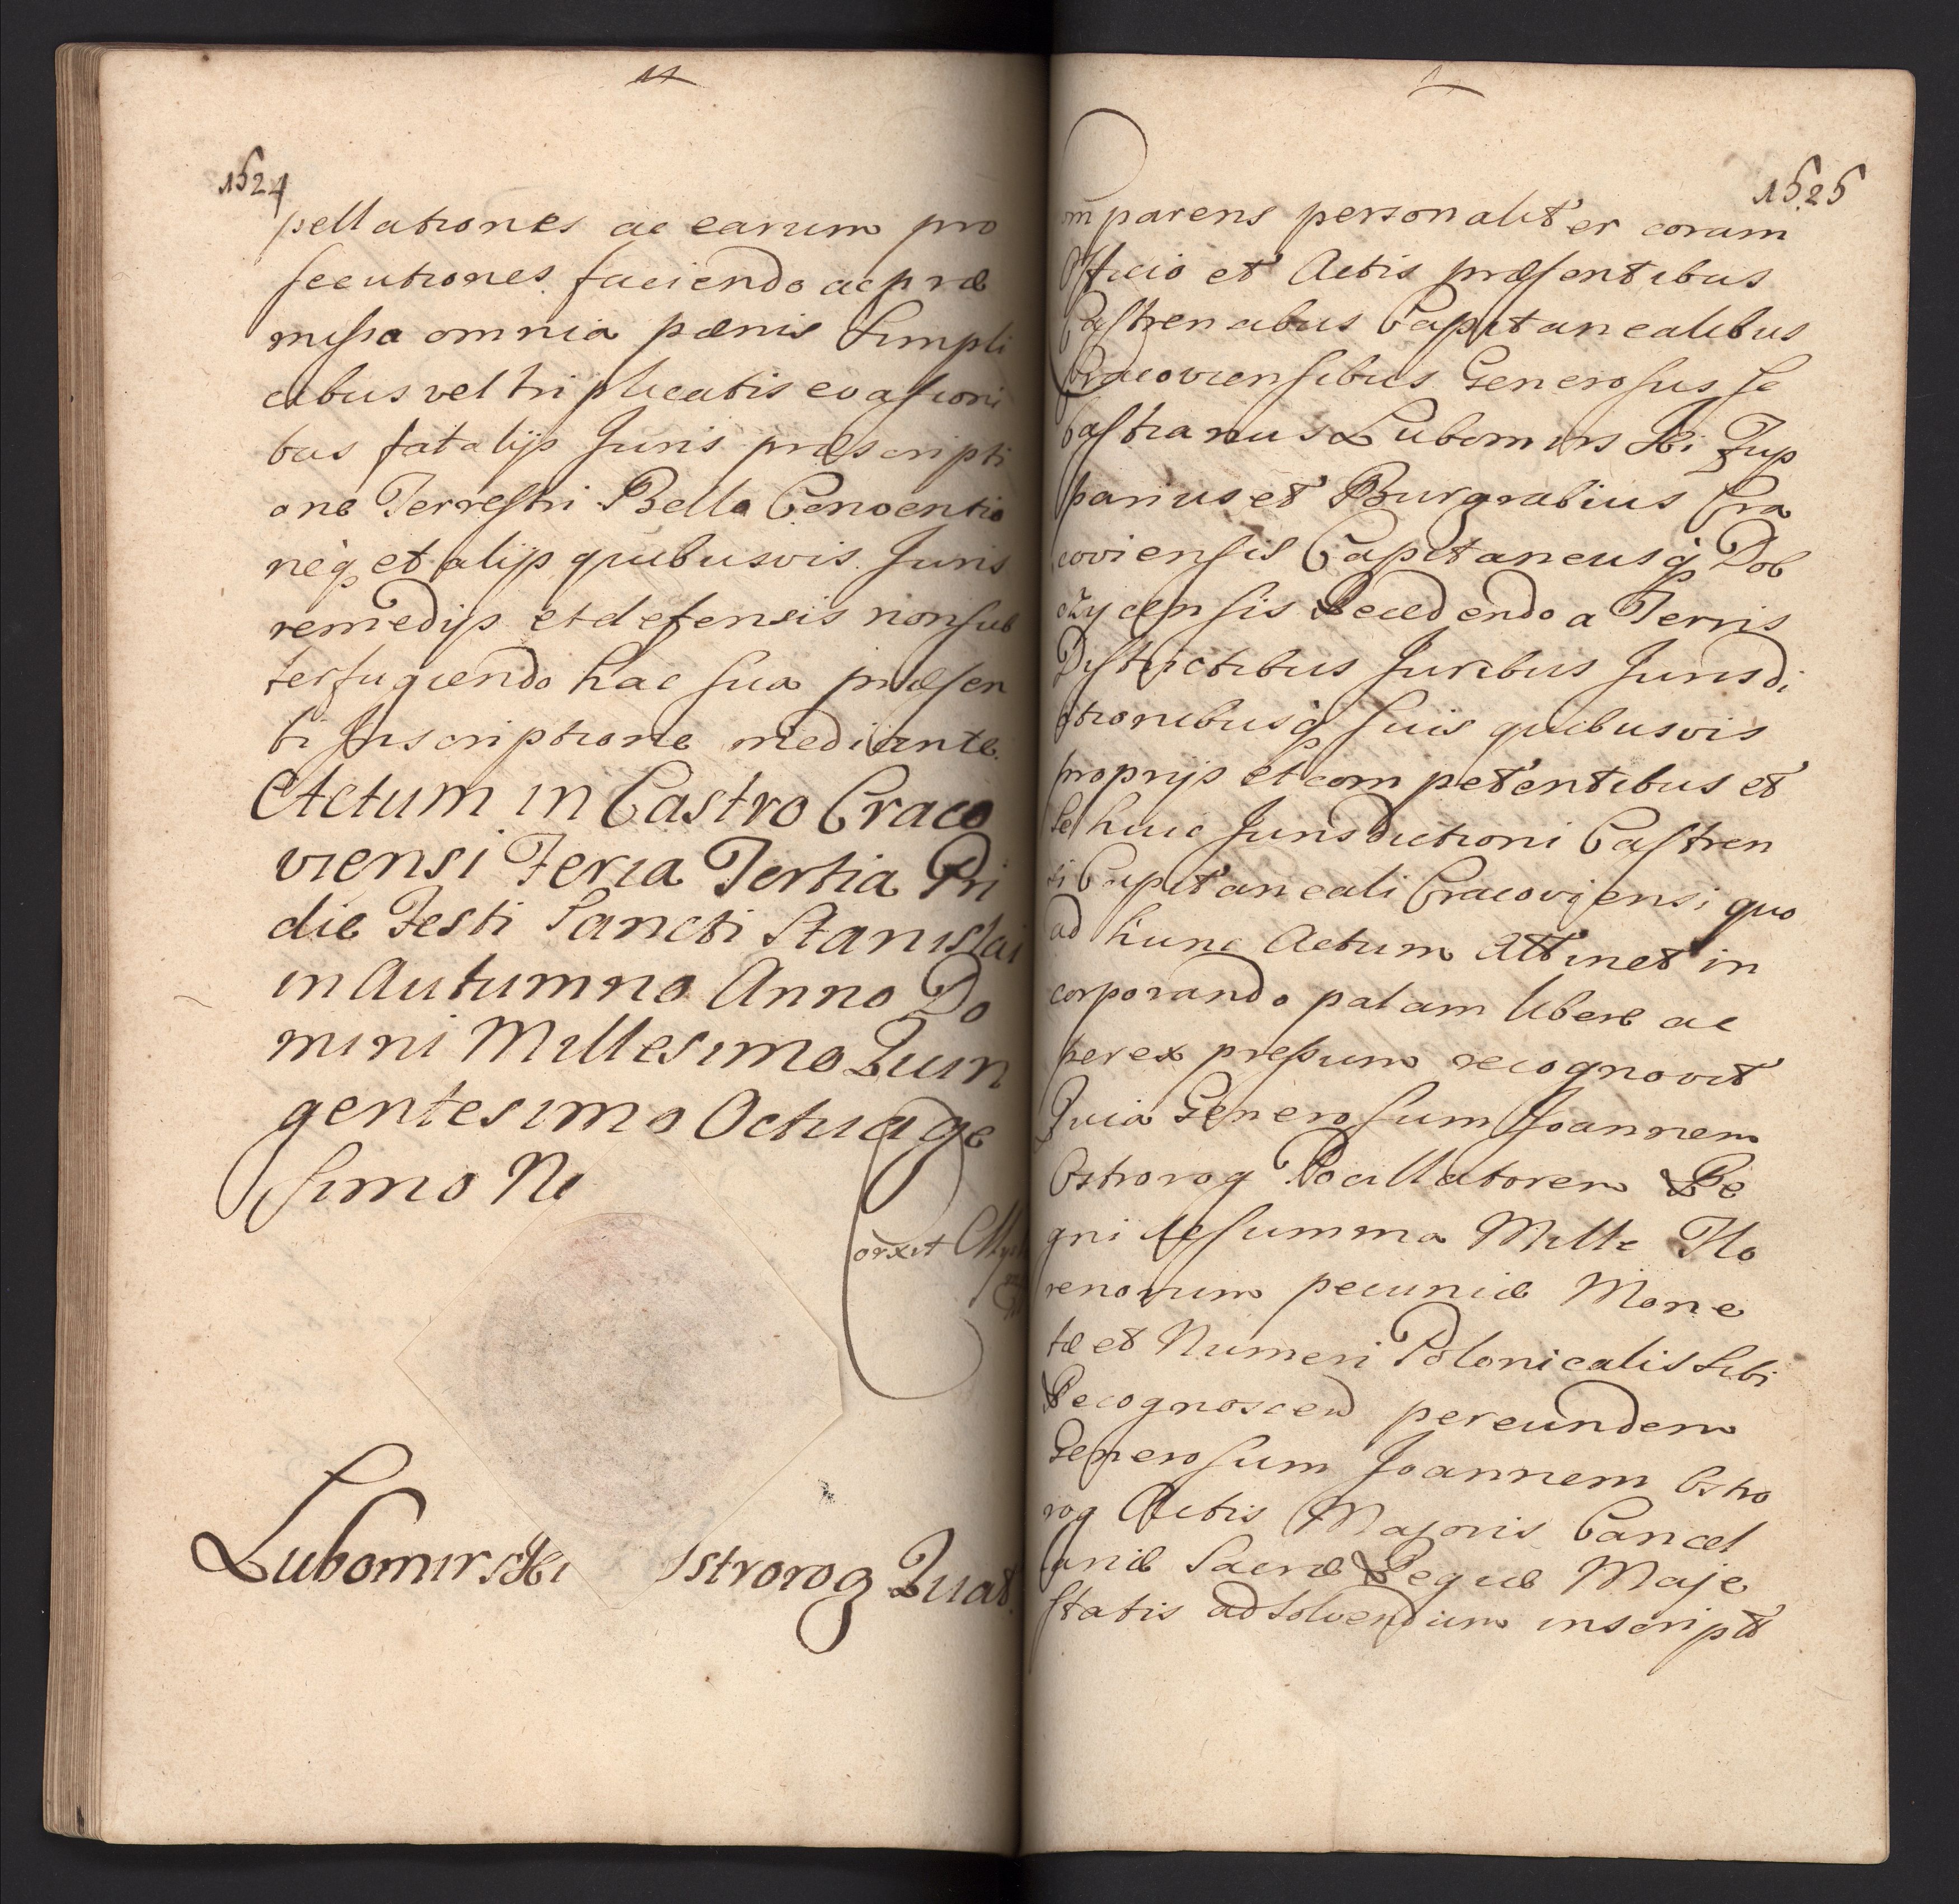 1524
pellationes ac earum pro
secutiones faciendo ac præ
missa omnia pænis simpli
cibus vel triplicatis evasioni
bus fatalijs Juris præscripti
one Terrestri Bello Conventio
neq, et alijs quibusvis Juris
remedijs et defensis non sub
terfugiendo hac sua præsen
ti Inscriptione mediante.
Actum in Castro Craco
viensi Feria Tertia Pri
die Festi Sancti Stanislai
in Autumno Anno Do
mini Millesimo Quin
gentesimo Octuage
simo No
orxit
Lubomirski Ostrorog Quat.
1525
Comparens personaliter coram
Officio et Actis præsentibus
Castrensibus Capitanealibus
Cracoviensibus Generosus Se
bastianus Lubomirski Zup
parius et Burgrabius Cra
coviensis Capitaneusq, Dob
czycensis Recedendo a Terris
Districtibus Juribus Jurisdi
ctionibusq, suis quibusvis
proprijs et competentibus et
se huic Jurisdictioni Castren
si Capitaneali Cracoviensi quo
ad hunc Actum attinet in
corporando palam libere ac
per expressum recognovit
Quia Generosum Joannem
Ostrorog Pocillatorem Re
gni de summa Mille Flo
renorum pecuniæ Mone
tæ et Numeri Polonicalis Sibi
Recognoscen per eundem
Generosum Joannem Ostro
rog Actis Majoris Cancel
lariæ Sacræ Regiæ Maje
statis ad solvendum inscript